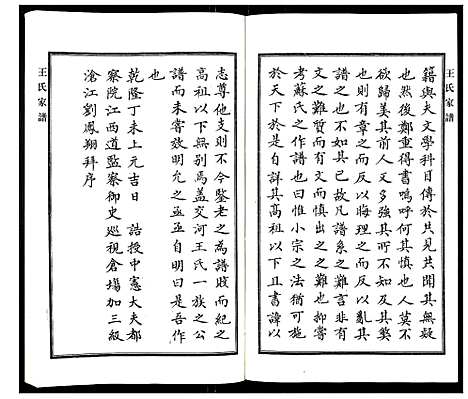 王氏家譜
籍與夫文學科目傳於共見共聞其無疑
也然後鄭重得書嗚呼何其慎也人莫不
欲歸美其前人又多強其所不知及其美
也則有章之而反以晦理之而反以亂其
譜之也不如其已故凡譜系之難言非有
文之難質而有文慎出之之難也抑嘗
考蘇氏之作譜也曰惟小宗之法猶可施
於天下於是自詳其高祖以下且書諱以
志尊他支則不令鑒老之為譜既而紀之
高祖以下無別焉蓋交河王氏一族之公
譜而未嘗效明允之亟亟自明曰是吾作
也
乾隆丁未上元吉日 誥授中憲大夫都
察院江西道監察御史巡視倉場加三級
滄江劉鳳翔拜序
王氏家譜